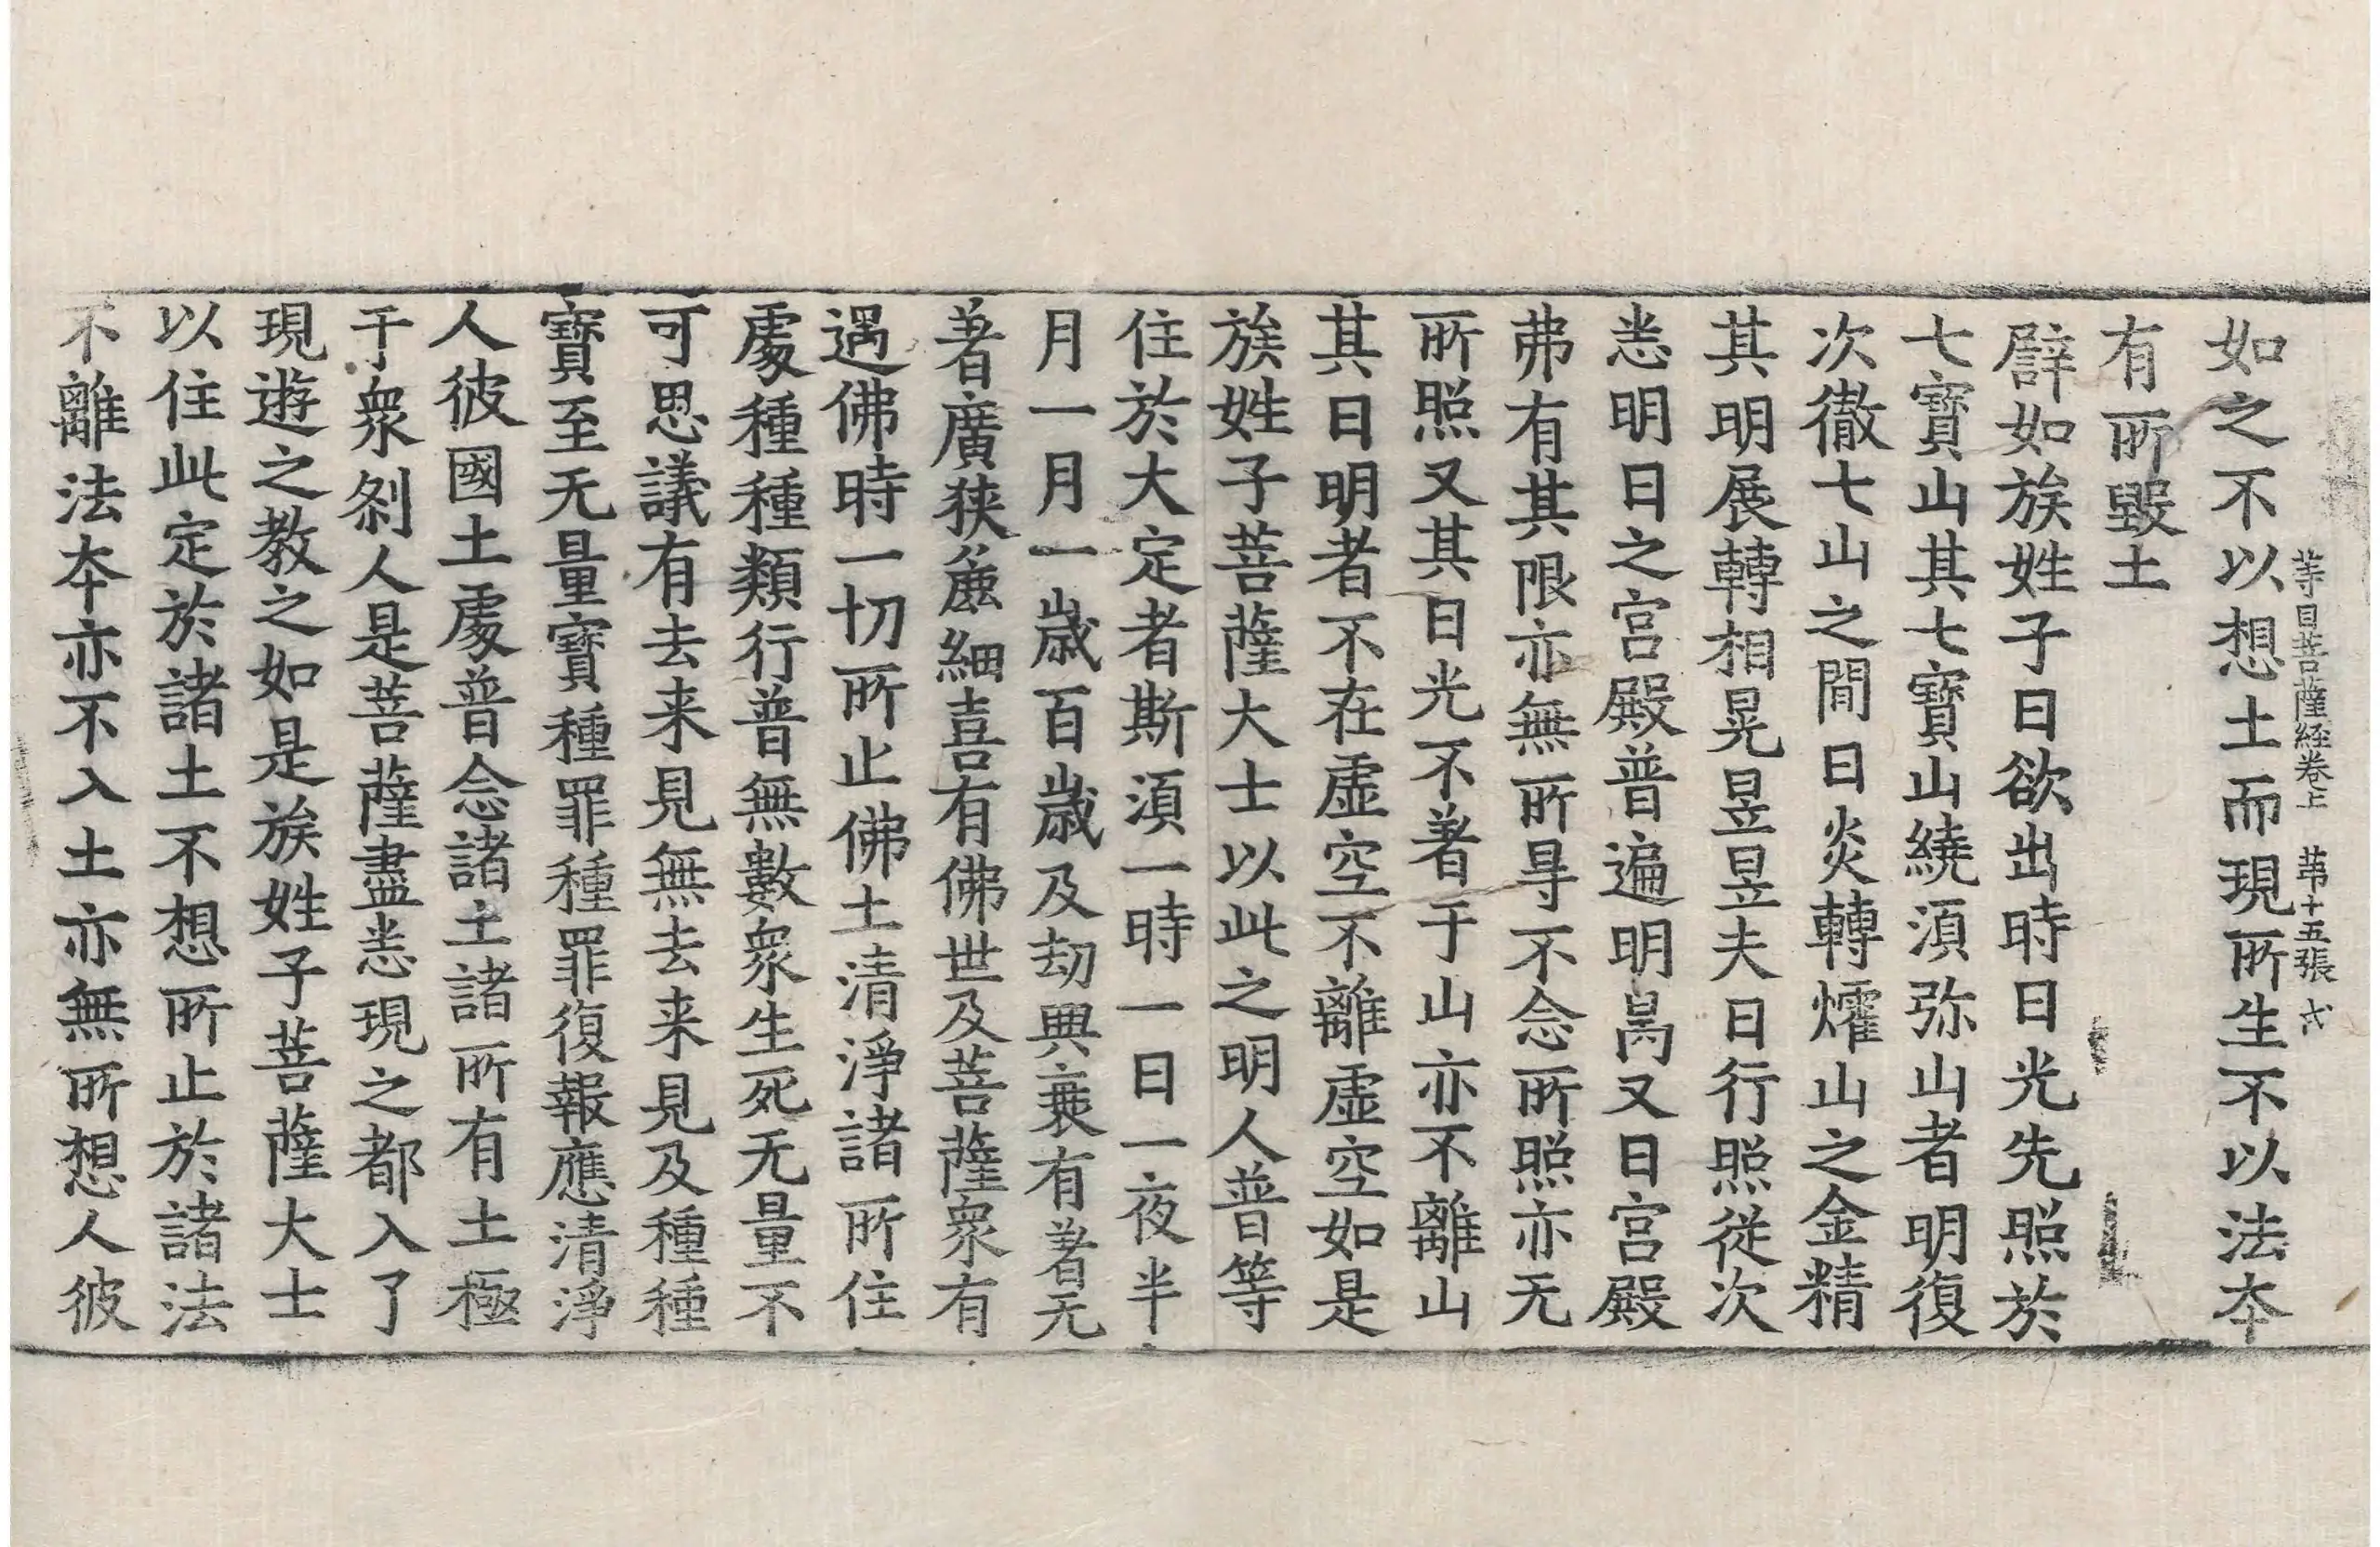 如之不以想土而現所生不以法夲
等目菩薩経卷上 苐十五張
有所毀土
辟如族姓子日欲出時日光先照於
七寶山其七寶山繞湏弥山者明復
次徹七山之間日炎轉燿山之金精
其明展轉相晃昱昱夫日行照従次
悉明日之宫殿普遍明曷又日宫殿
弗有其限亦無所㝵不念所照亦无
所照又其日光不著于山亦不離山
其日明者不在虛空不離虛空如是
族姓子菩薩大士以此之明人普等
住於大定者斯湏一時一日一夜半
月一月一歲百歲及劫興衰有著无
著廣狹麁細喜有佛世及菩薩衆有
遇佛時一切所止佛土清淨諸所住
處種種類行普無數衆生死无量不
可思議有去来見無去来見及種種
寶至无量寶種罪種罪復報應清淨
人彼國土處普念諸土諸所有土極
于衆刹人是菩薩盡悉現之都入了
現遊之教之如是族姓子菩薩大士
以住此定於諸土不想所止於諸法
不離法夲亦不入土亦無所想人彼